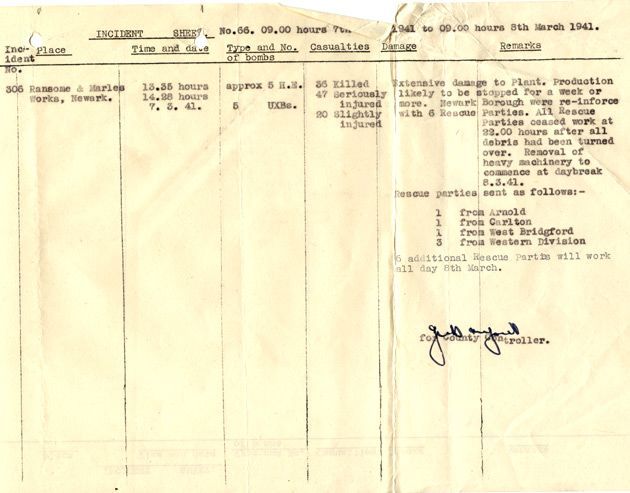 INCIDENT SHEET No.66. 09.00 hours 7th 1941 to 09.00 hours 8th March 1941.
Inci- Place Time and date Type and No. Casualties Damage Remarks
ident of bombs
No.
306 Ransome & Marles 13.35 hours approx 5 H.E. 36 Killed Extensive damage to Plant. Production
Works, Newark. 14.28 hours 47 Seriously likely to be stopped for a week or
7. 3. 41. 5 UXBs. injured more. Newark Borough were re-inforce
20 Slightly with 6 Rescue Parties. All Rescue
injured Parties ceased work at
22.00 hours after all
debris had been turned
over. Removal of
heavy machinery to
commence at daybreak
8.3.41.
Rescue parties sent as follows:-
1 from Arnold
1 from Carlton
1 from West Bridgford
3 from Western Division
6 additional Rescue Partis will work
all day 8th March.
for County Controller.